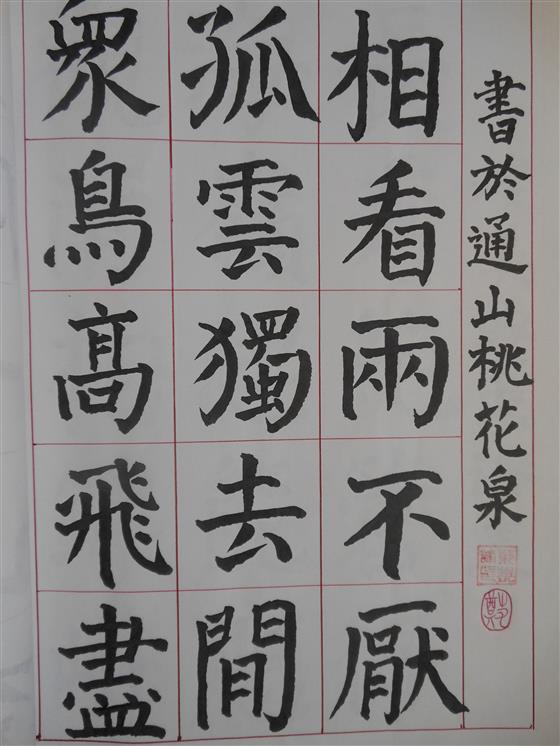 衆鳥髙飛盡
孤雲獨去閒
相看兩不厭
書於通山桃花泉